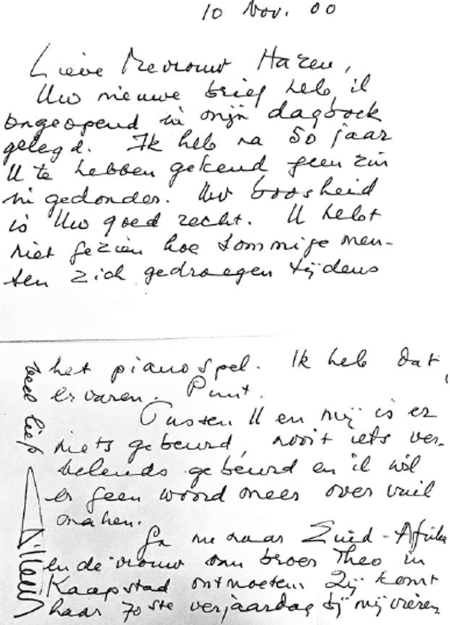 10 Nov. 00
Lieve Mevrouw Hazeu,
Uw nieuwe brief heb ik
ongeopend in mijn dagboek
gelegd. Ik heb na 50 jaar
U te hebben gekend geen zin
in gedonder. Uw boosheid
is Uw goed recht. U hebt
niet gezien hoe sommige men-
sen zich gedroegen tijdens
het pianospel. Ik heb dat
ervaren. Punt.
Tussen U en mij is er
niets gebeurd, nooit iets ver-
velends gebeurd en ik wil
er geen woord meer over vuil
maken.
Ga nu naar Zuid-Afrika
en de vrouw van broer Theo in
Kaapstad ontmoeten. Zij komt
haar 70ste verjaardag bij mij vieren
veel liefs